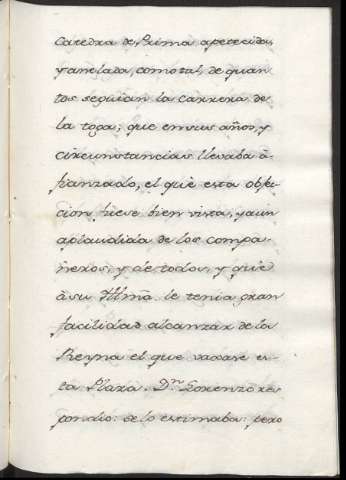 Catedra de Prima apetecida,
y anelada, como tal, de quan
tos seguian la carrera de
la toga; que en sus años, y
circunstancias llevaba à
fianzado, el que esta obje
cion fuese bien vista, y aun
aplaudida de los compa
ñeros, y de todos, y que
à su Illmã. le tenia gran
facilidad alcanzar de la
Reyna el que vacase es
ta Plaza. Dⁿ. Lorenzo res
pondio: de lo estimaba: pero